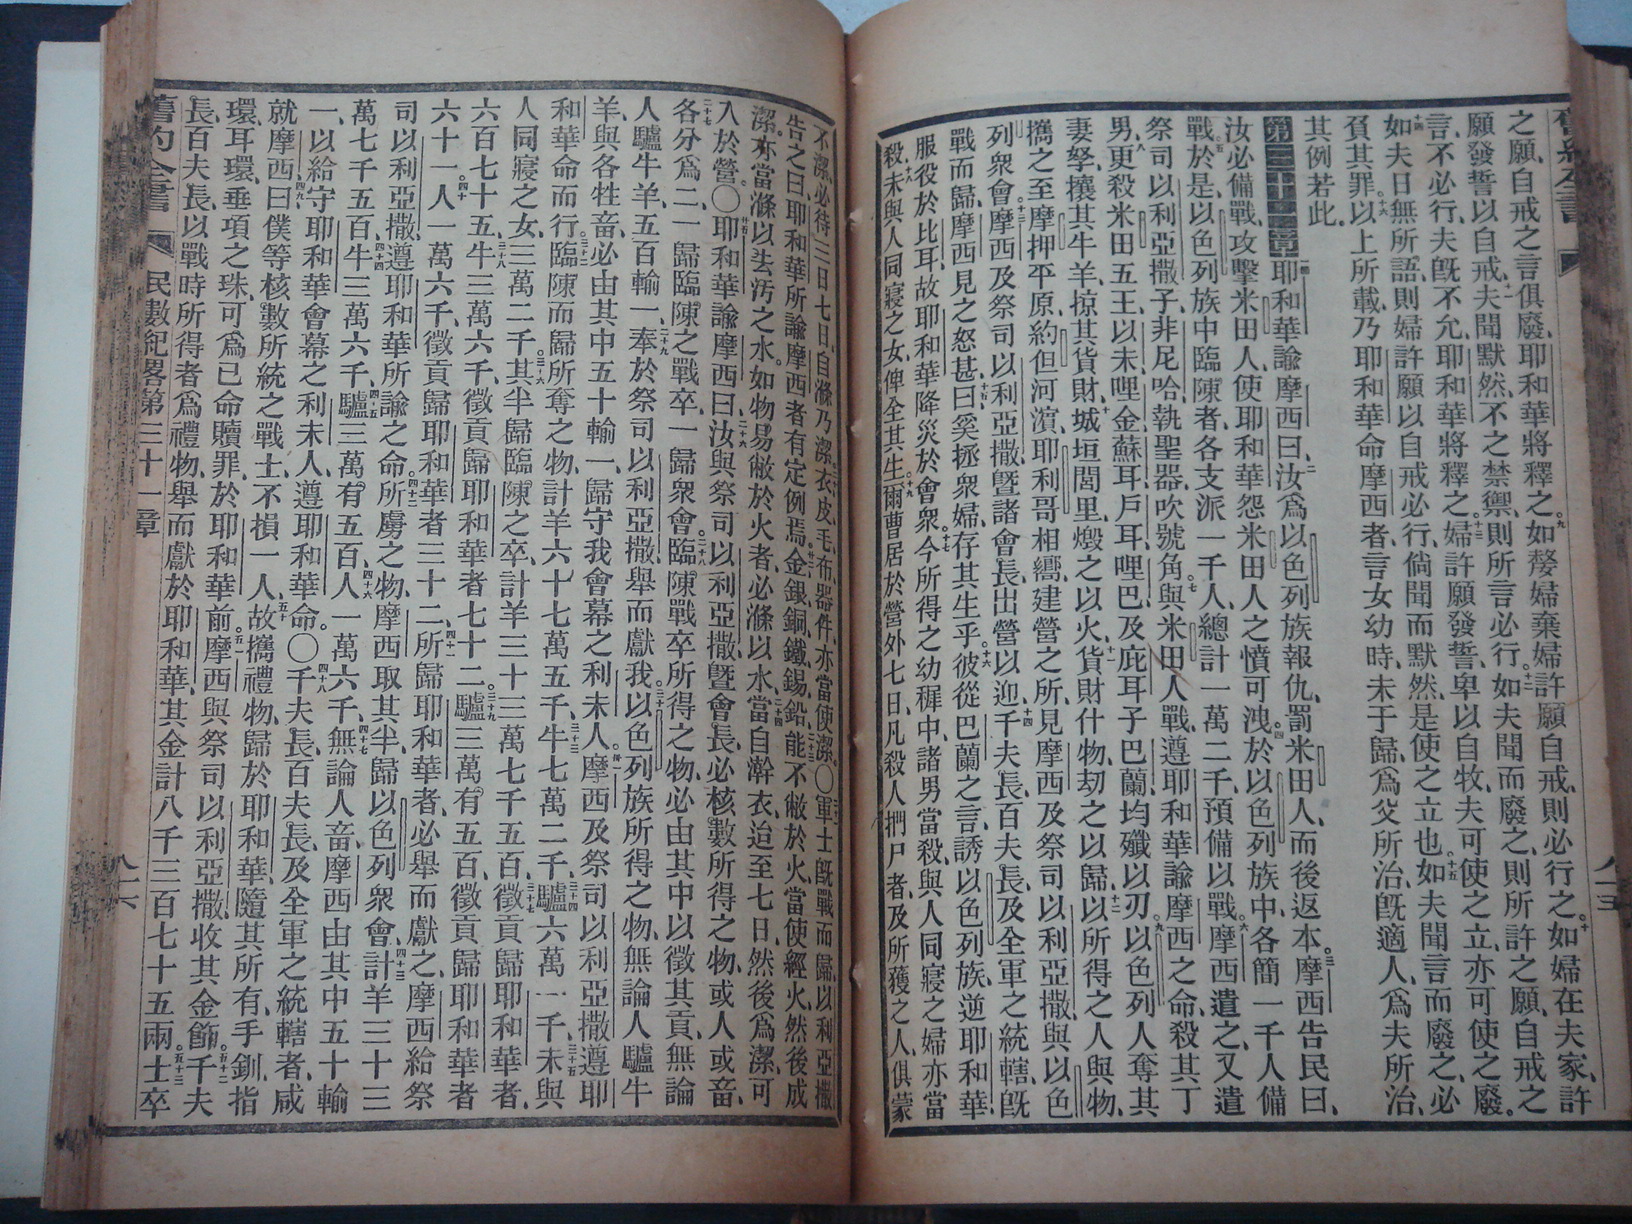 舊約全書
八十五
之願、自戒之言俱廢、耶和華將釋之。九如嫠婦棄婦許願自戒、則必行之。十如婦在夫家、許
願發誓以自戒、十一夫聞默然、不之禁禦、則所言必行。十二如夫聞而廢之、則所許之願、自戒之
言、不必行、夫既不允、耶和華將釋之。十三婦許願發誓、卑以自牧、夫可使之立、亦可使之廢。
十四如夫日無所語、則婦許願以自戒必行、倘聞而默然、是使之立也。十五如夫聞言而廢之、必
負其罪。十六以上所載、乃耶和華命摩西者、言女幼時、未于歸、爲父所治、既適人、爲夫所治、
其例若此。
第三十一章一耶和華諭摩西曰、二汝爲以色列族報仇、罰米田人、而後返本。三摩西告民曰、
汝必備戰、攻擊米田人、使耶和華怨米田人之憤可洩。四於以色列族中、各簡一千人備
戰。五於是以色列族中臨陳者、各支派一千人、總計一萬二千、預備以戰。六摩西遣之、又遣
祭司以利亞撒子非尼哈、執聖器、吹號角。七與米田人戰、遵耶和華諭摩西之命、殺其丁
男。八更殺米田五王、以未哩金蘇耳戶耳哩巴及庇耳子巴蘭、均殲以刃。九以色列人奪其
妻孥、攘其牛羊、掠其貨財、十城垣閭里、燬之以火。十一貨財什物、刼之以歸。十二以所得之人與物、
攜之至摩押平原、約但河濱、耶利哥相嚮、建營之所、見摩西及祭司以利亞撒、與以色
列衆會。十三摩西及祭司以利亞撒、暨諸會長、出營以迎。十四千夫長、百夫長、及全軍之統轄、既
戰而歸、摩西見之怒甚、十五曰、奚拯衆婦、存其生乎。十六彼從巴蘭之言、誘以色列族、逆耶和華、
服役於比耳、故耶和華降災於會衆。十七今所得之幼穉中、諸男當殺、與人同寢之婦亦當
殺。十八未與人同寢之女、俾全其生。十九爾曹居於營外七日、凡殺人捫尸者、及所獲之人、俱蒙
不潔、必待三日七日、自滌乃潔。二十衣皮毛布、器件亦當使潔。〇二十一軍士既戰而歸、以利亞撒
告之曰、耶和華所諭摩西者、有定例焉。二十二金銀銅鐵錫鉛、二十三能不敝於火、當使經火、然後成
潔、亦當滌以去汚之水。如物易敝於火者、必滌以水。二十四當自澣衣、迨至七日、然後爲潔、可
入於營。〇二十五耶和華諭摩西曰、二十六汝與祭司以利亞撒、暨會長、必核數所得之物、或人或畜、
二十七各分爲二、一歸臨陳之戰卒、一歸衆會。二十八臨陳戰卒所得之物、必由其中以徵其貢、無論
人驢牛羊、五百輸一、二十九奉於祭司以利亞撒、舉而獻我。三十以色列族所得之物、無論人驢牛
羊、與各牲畜、必由其中五十輸一、歸守我會幕之利未人。三十一摩西及祭司以利亞撒、遵耶
和華命而行。三十二臨陳而歸所奪之物、計羊六十七萬五千、三十三牛七萬二千、三十四驢六萬一千、三十五未與
人同寢之女、三萬二千。三十六其半歸臨陳之卒、計羊三十三萬七千五百、三十七徵貢歸耶和華者、
六百七十五、三十八牛三萬六千、徵貢歸耶和華者七十二。三十九驢三萬有五百、徵貢歸耶和華者
六十一。四十人一萬六千、徵貢歸耶和華者三十二、四十一所歸耶和華者、必舉而獻之、摩西給祭
司以利亞撒、遵耶和華所諭之命。四十二所虜之物、摩西取其半、歸以色列衆會、四十三計羊三十三
萬七千五百、四十四牛三萬六千、四十五驢三萬有五百、四十六人一萬六千、四十七無論人畜、摩西由其中五十輸
一、以給守耶和華會幕之利未人、遵耶和華命。〇四十八千夫長、百夫長、及全軍之統轄者、咸
就摩西曰、四十九僕等核數所統之戰士、不損一人、五十故攜禮物、歸於耶和華、隨其所有、手釧指
環、耳環、垂項之珠、可爲已命贖罪、於耶和華前。五十一摩西與祭司以利亞撒收其金飾。五十二千夫
長、百夫長、以戰時所得者爲禮物、舉而獻於耶和華、其金計八千三百七十五兩。五十三士卒
舊約全書
民數紀畧第三十一章
八十六